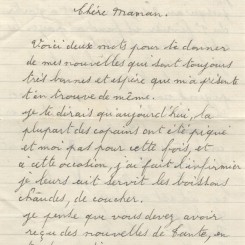 Chère Maman.
Voici deux mots pour te donner
de mes nouvelles qui sont toujours
très bonnes et espère que ma présente
t'en trouve de même.
je te dirais qu'aujourd'hui, la
plupart des copains ont été piqué
et moi pas pour cette fois, et
a cette occasion, j'ai fait l'infirmier
je leurs ait servit les boissons
chaudes, de coucher.
je pense que vous devez avoir
reçu des nouvelles de